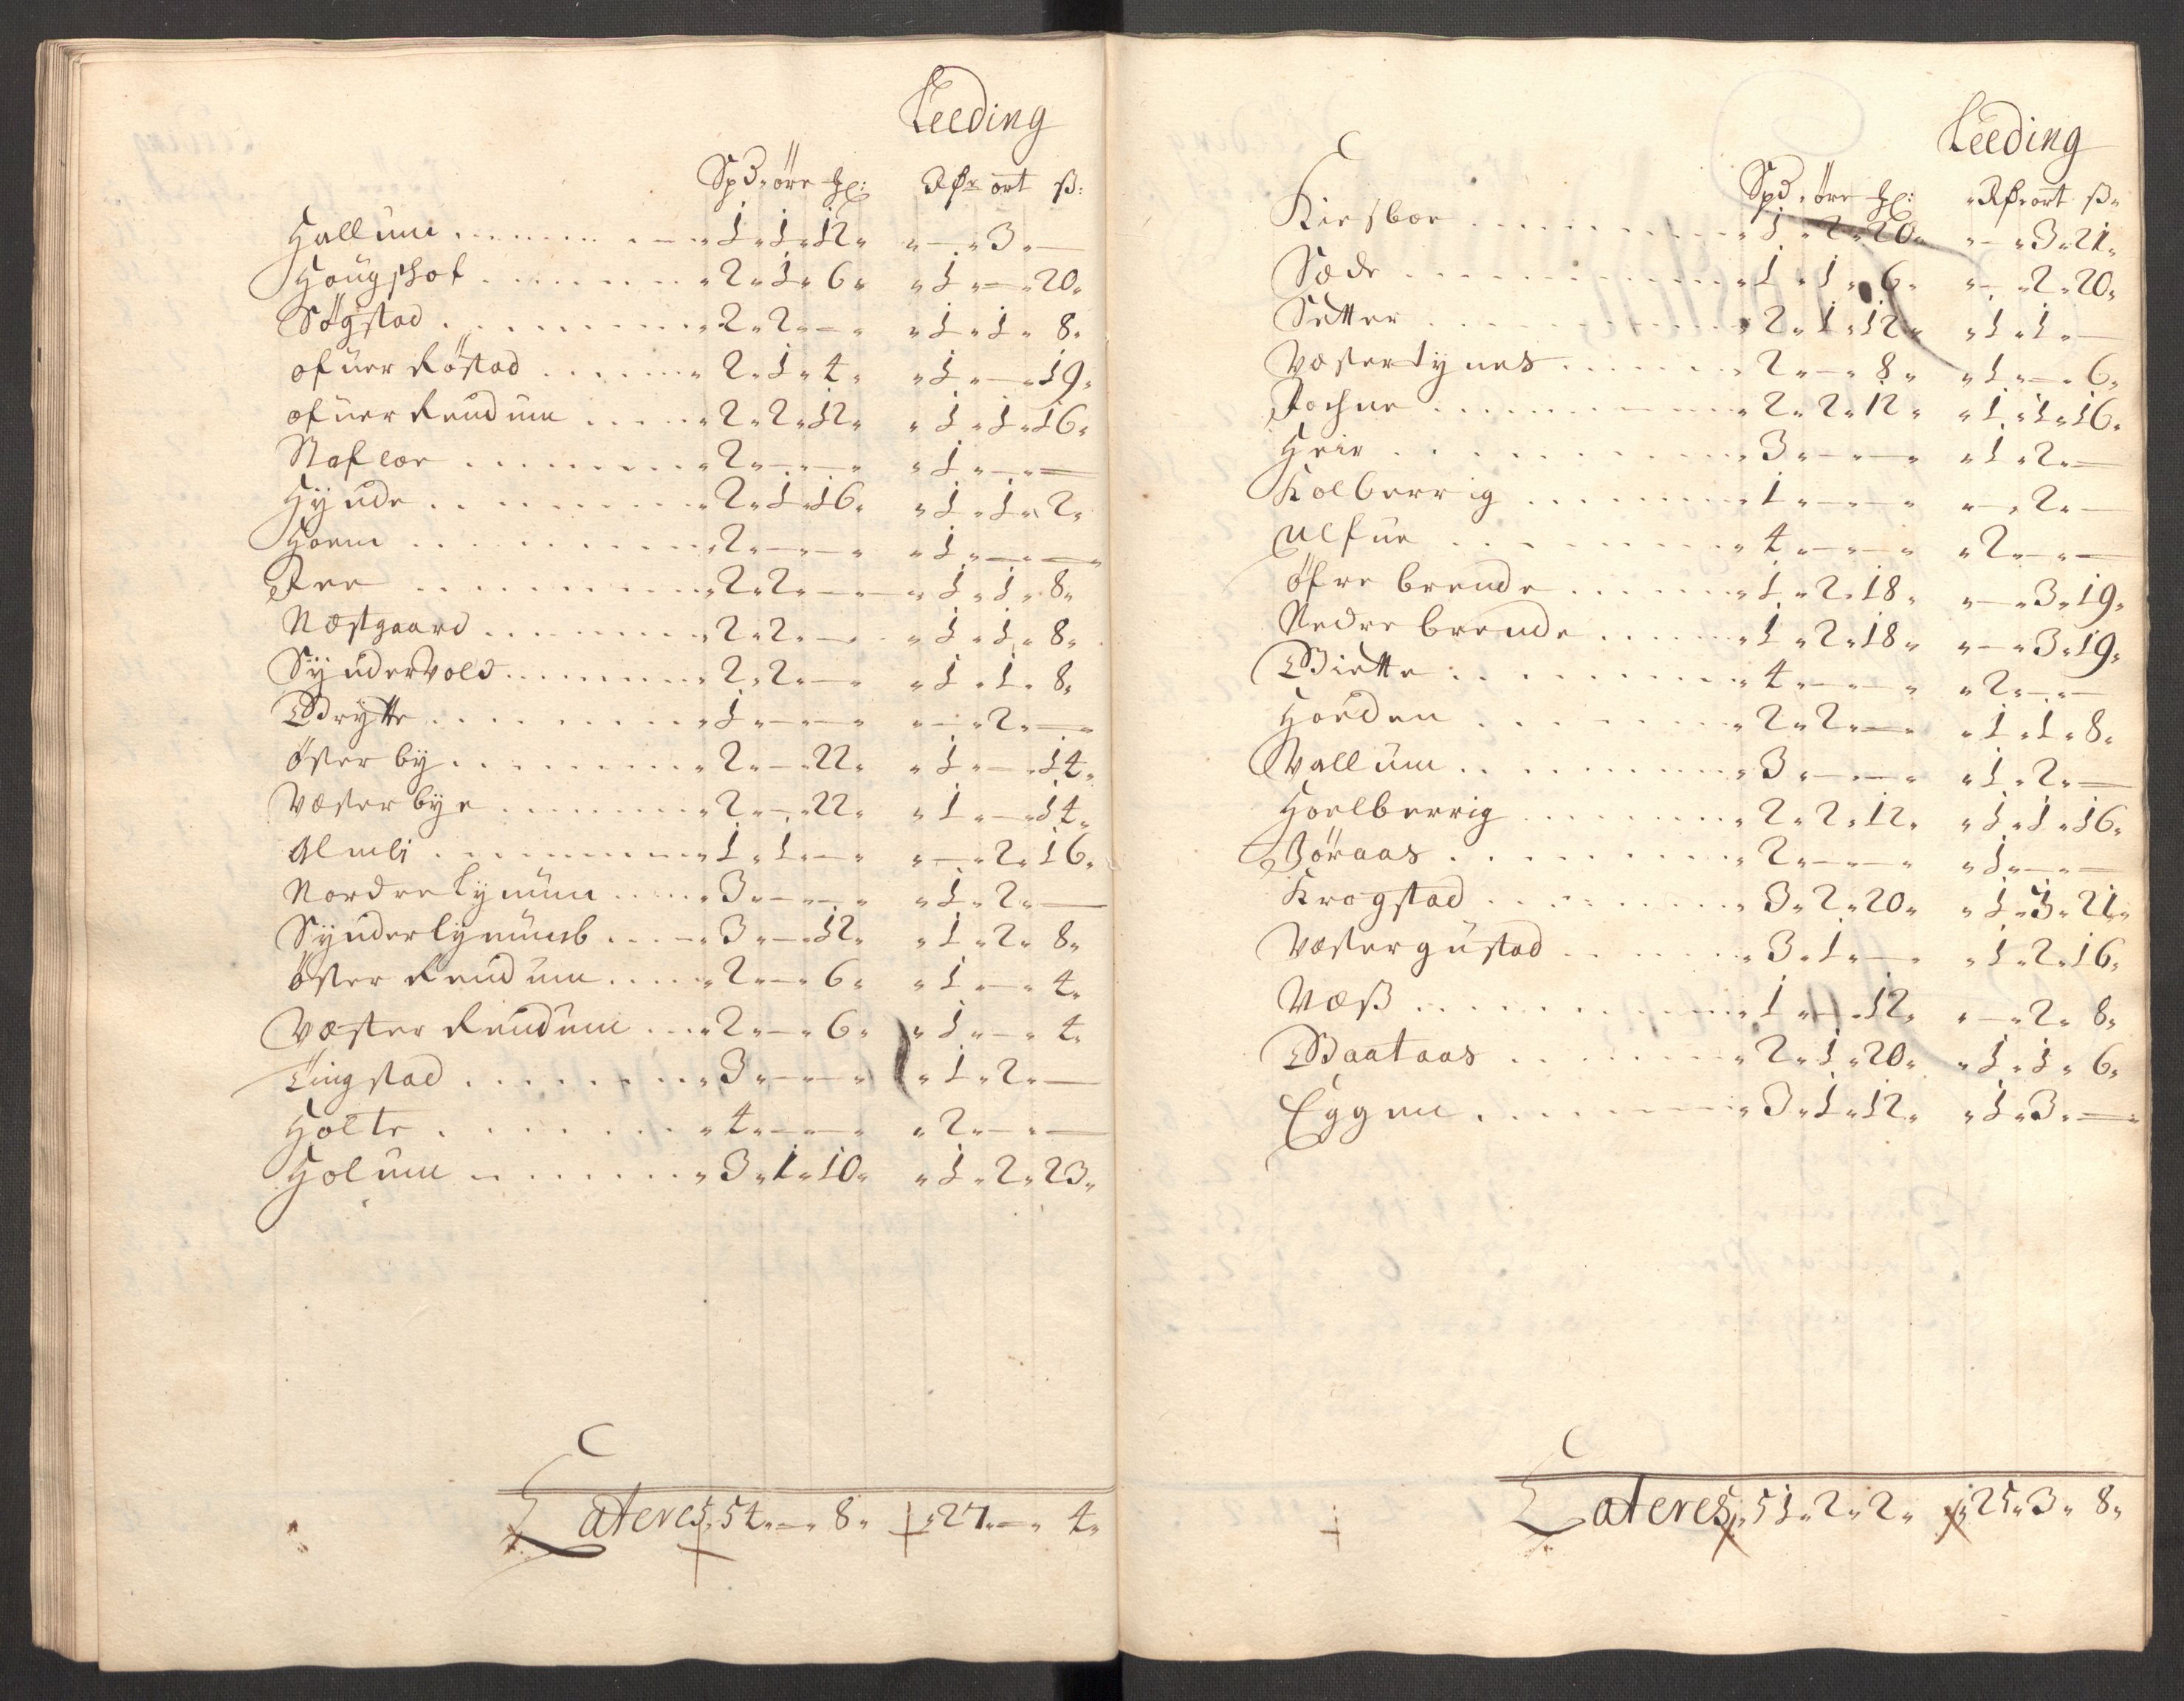 Leeding
Spd, öre
Rdr ort ß:
Hallum . . . . . . . . . „ 1 „ 1 „ 12 „ „ — „ 3 „ —
Hougshol . . . . . . . „ 2 „ 1 „ 6 „ „ 1 „ — „ 20 „
Søgstad . . . . . . . . „ 2 „ 2 „ — „ „ 1 „ 1 „ 8 „
ofuer Røstad . . . . . . „ 2 „ 1 „ 4 „ „ 1 „ — „ 19 „
ofuer Rendum . . . . . „ 2 „ 2 „ 12 „ „ 1 „ 1 „ 16 „
. . . . . . . . „ 2 „ — „ — „ „ 1 „ — „ —
Hynde . . . . . . . . „ 2 „ 1 „ 16 „ „ 1 „ 1 „ 2 „
Hoem . . . . . . . . „ 2 „ — „ — „ „ 1 „ — „ —
Ree . . . . . . . . „ 2 „ 2 „ — „ „ 1 „ 1 „ 8 „
Næstgaard . . . . . . . „ 2 „ 2 „ — „ „ 1 „ 1 „ 8 „
Syndervold . . . . . . . „ 2 „ 2 „ — „ „ 1 „ 1 „ 8 „
Brytte . . . . . . . . „ 1 „ — „ — „ „ — „ 2 „ —
öster by . . . . . . . . „ 2 „ — „ 22 „ „ 1 „ — „ 14 „
Væster bye . . . . . . . „ 2 „ — „ 22 „ „ 1 „ — „ 14 „
Almli . . . . . . . . „ 1 „ 1 „ — „ „ — „ 2 „ 16 „
Nordre lynum . . . . . „ 3 „ — „ — „ „ 1 „ 2 „ —
Synderlynumb . . . . „ 3 „ — „ 12 „ „ 1 „ 2 „ 8 „
öster Rendum . . . . „ 2 „ — „ 6 „ „ 1 „ — „ 4 „
Væster Rendum . . . „ 2 „ — „ 6 „ „ 1 „ — „ 4 „
Tingstad . . . . . . . . „ 3 „ — „ — „ „ 1 „ 2 „ —
Holte . . . . . . . „ 4 „ — „ — „ „ 2 „ — „ —
Holum . . . . . . . „ 3 „ 1 „ 10 „ „ 1 „ 2 „ 23 „
Lateres „ 54 „ — „ 8 „ „ 27 „ — „ 4 „
Leeding
Spd, öre
Rdr ort ß „
. . . . . . . . „ 1 „ 2 „ 20 „ „ — „ 3 „ 21 „
Sæde . . . . . . . . „ 1 „ 1 „ 6 „ „ — „ 2 „ 20 „
Setter . . . . . . . . „ 2 „ 1 „ 12 „ „ 1 „ 1 „ —
Væstertynes . . . . . . „ 2 „ — „ 8 „ „ 1 „ — „ 6 „
. . . . . . . . „ 2 „ 2 „ 12 „ „ 1 „ 1 „ 16 „
Heir . . . . . . . . „ 3 „ — „ — „ „ 1 „ 2 „ —
Kolberrig . . . . . . . „ 1 „ — „ — „ „ — „ 2 „ —
Ulfue . . . . . . . . „ 4 „ — „ — „ „ 2 „ — „ —
öfre brende . . . . . . „ 1 „ 2 „ 18 „ „ — „ 3 „ 19 „
Nedre brende . . . . . „ 1 „ 2 „ 18 „ „ — „ 3 „ 19 „
. . . . . . . . „ 4 „ — „ — „ „ 2 „ — „ —
. . . . . . . . „ 2 „ 2 „ — „ „ 1 „ 1 „ 8 „
Vallum . . . . . . . . „ 3 „ — „ — „ „ 1 „ 2 „ —
Hoelberrig . . . . . . . „ 2 „ 2 „ 12 „ „ 1 „ 1 „ 16 „
Böraas . . . . . . . . „ 2 „ — „ — „ „ 1 „ — „ —
Krogstad . . . . . . . . „ 3 „ 2 „ 20 „ „ 1 „ 3 „ 21 „
Væstergustad . . . . . . „ 3 „ 1 „ — „ „ 1 „ 2 „ 16 „
Væß . . . . . . . . „ 1 „ — „ 12 „ „ — „ 2 „ 8 „
Baataas . . . . . . . „ 2 „ 1 „ 20 „ „ 1 „ 1 „ 6 „
Eggen . . . . . . . . „ 3 „ 1 „ 12 „ „ 1 „ 3 „ —
Lateres „ 51 „ 2 „ 2 „ „ 25 „ 3 „ 8 „